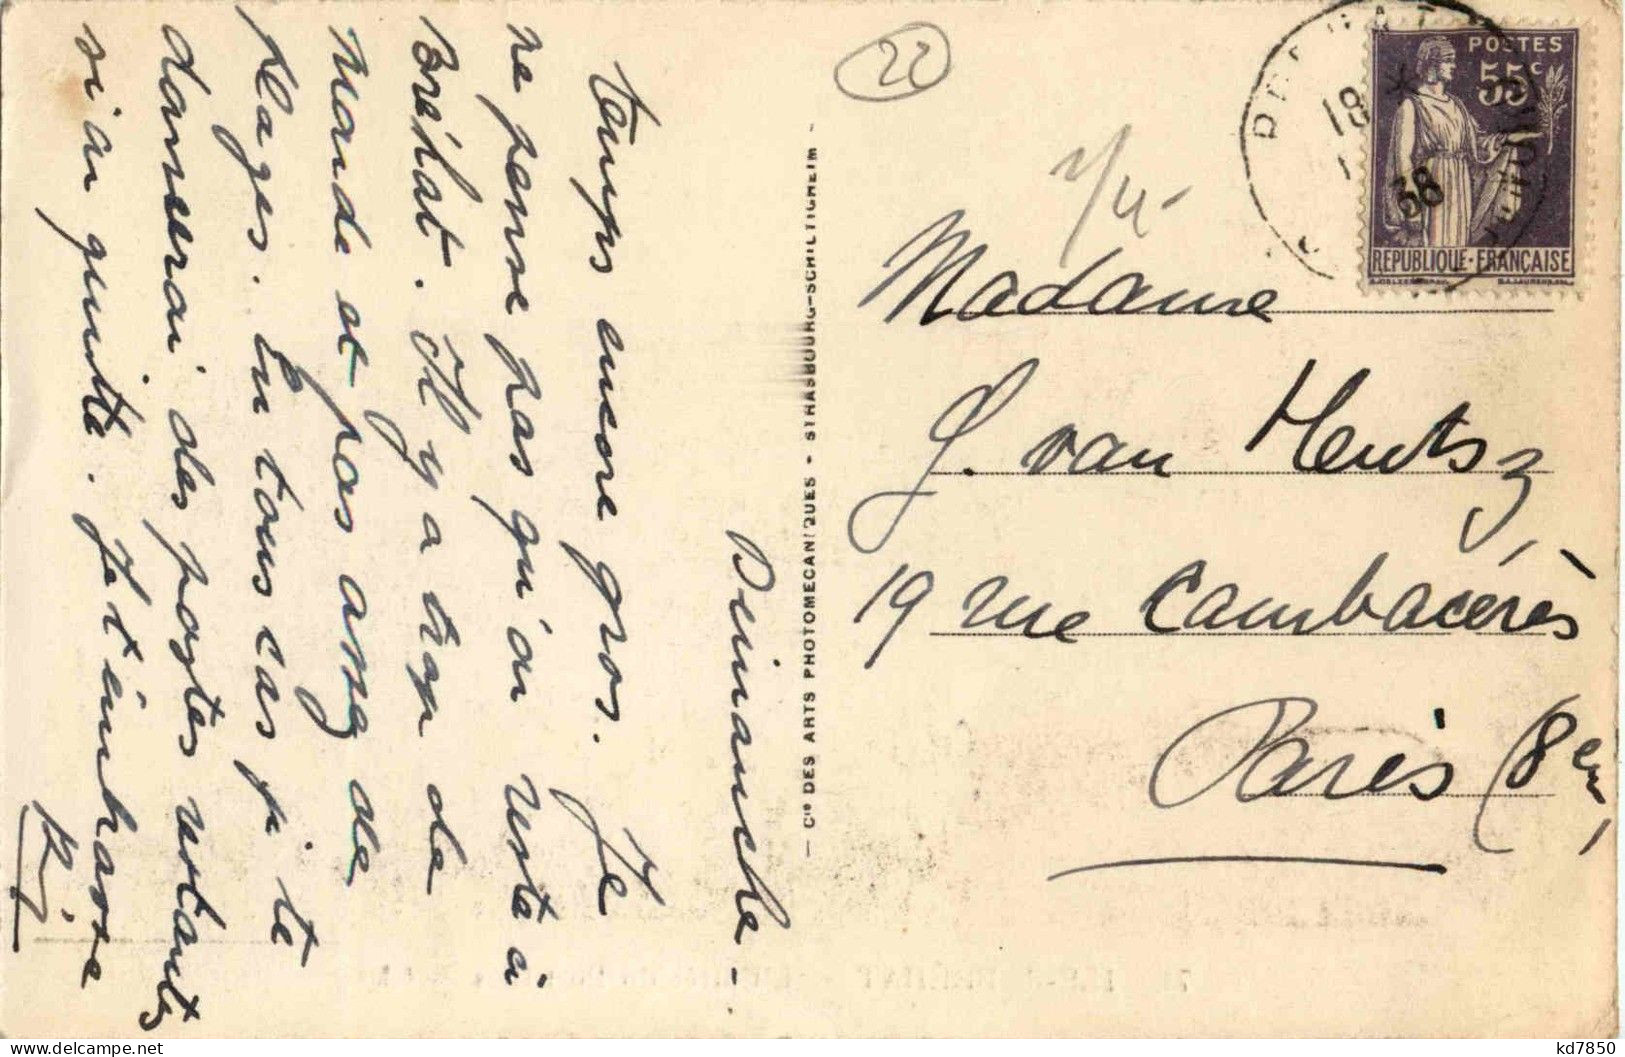 Dimanche -
Temps encore gros. Je
ne pense pas qu'on reste à
Bréhat. Il y a trop de
monde et pas assez de
plages. En tous cas je te
donnerai des postes restantes
si on quitte. Je t'embrasse
22
Madame
J. van Heutsz
19 rue Cambacérès
Paris (8em)
POSTES
55c
RÉPUBLIQUE·FRANÇAISE
18 *
38
- Cie DES ARTS PHOTOMECANIQUES - STRASBOURG-SCHILTIGHEIM -
kd7850